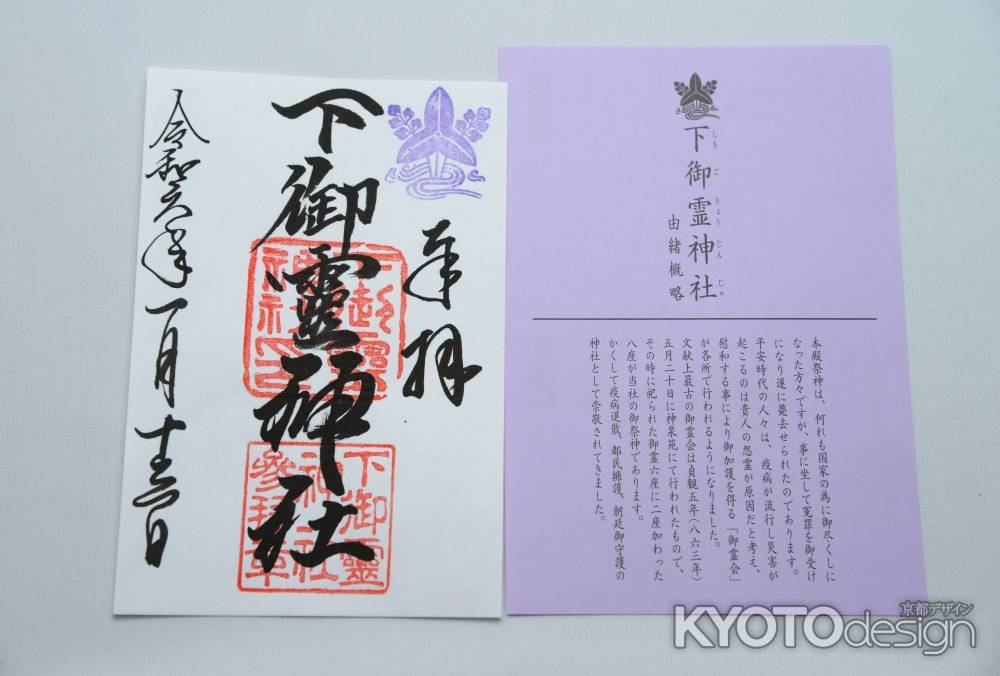 奉拝
下御靈神社
下御靈
神社
参拝章
令和六年一月十三日
下御霊神社
しもごりょうじんじゃ
由緒概略
本殿祭神は、何れも国家の為に御尽くしに
なった方々ですが、事に坐して冤罪を御受け
になり遂に薨去せられたのであります。
平安時代の人々は、疫病が流行し災害が
起こるのは貴人の怨霊が原因だと考え、
慰和する事により御加護を得る「御霊会」
が各所で行われるようになりました。
文献上最古の御霊会は貞観五年(八六三年)
五月二十日に神泉苑にて行われたもので、
その時に祀られた御霊六座に二座加わった
八座が当社の御祭神であります。
かくして疫病退散、都民擁護、朝廷御守護の
神社として崇敬されてきました。
京都デザイン
KYOTOdesign